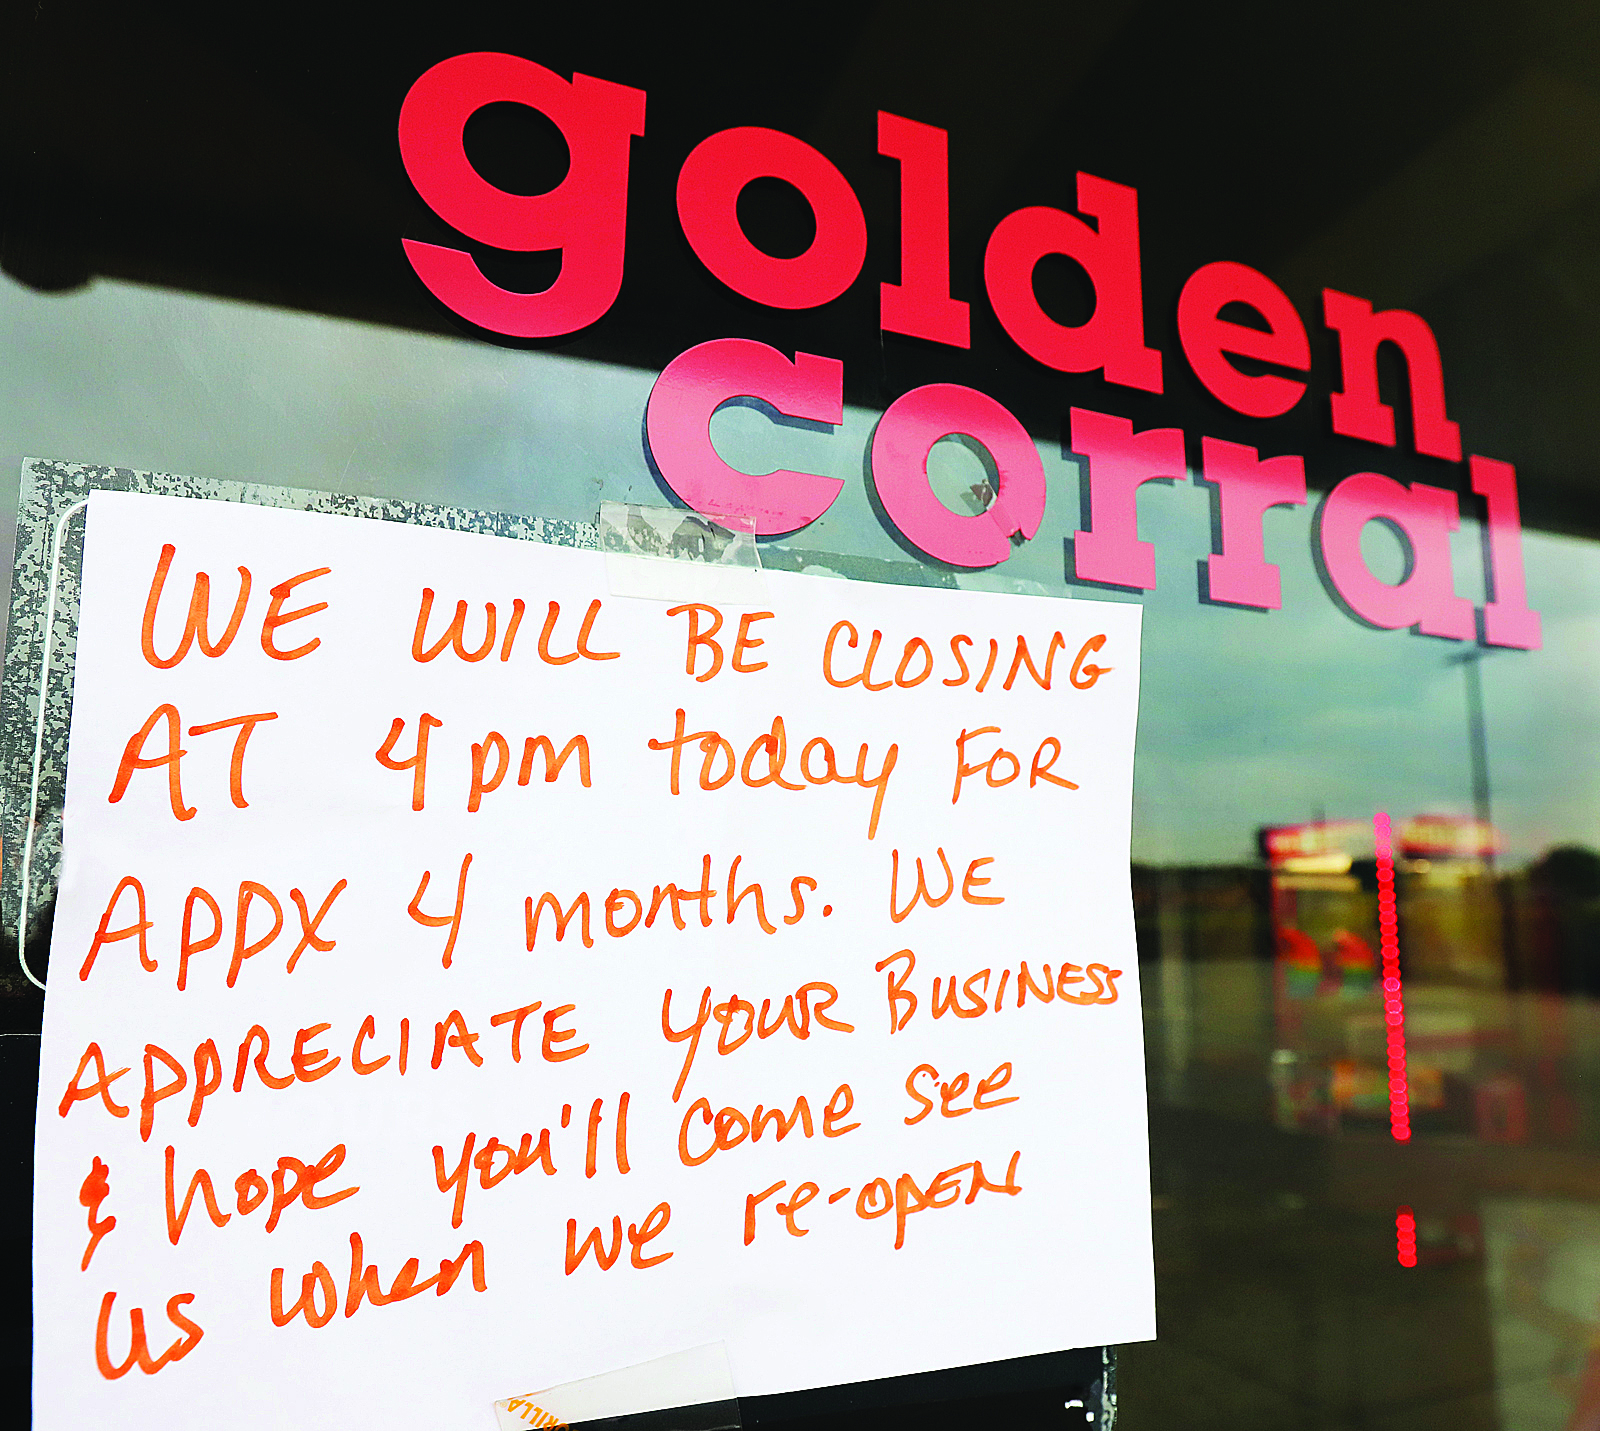 golden
corral
WE WILL BE CLOSING
AT 4pm today FOR
APPX 4 months. WE
APPRECIATE YOUR BUSINESS
& hope you'll come see
us when we re-OPEN